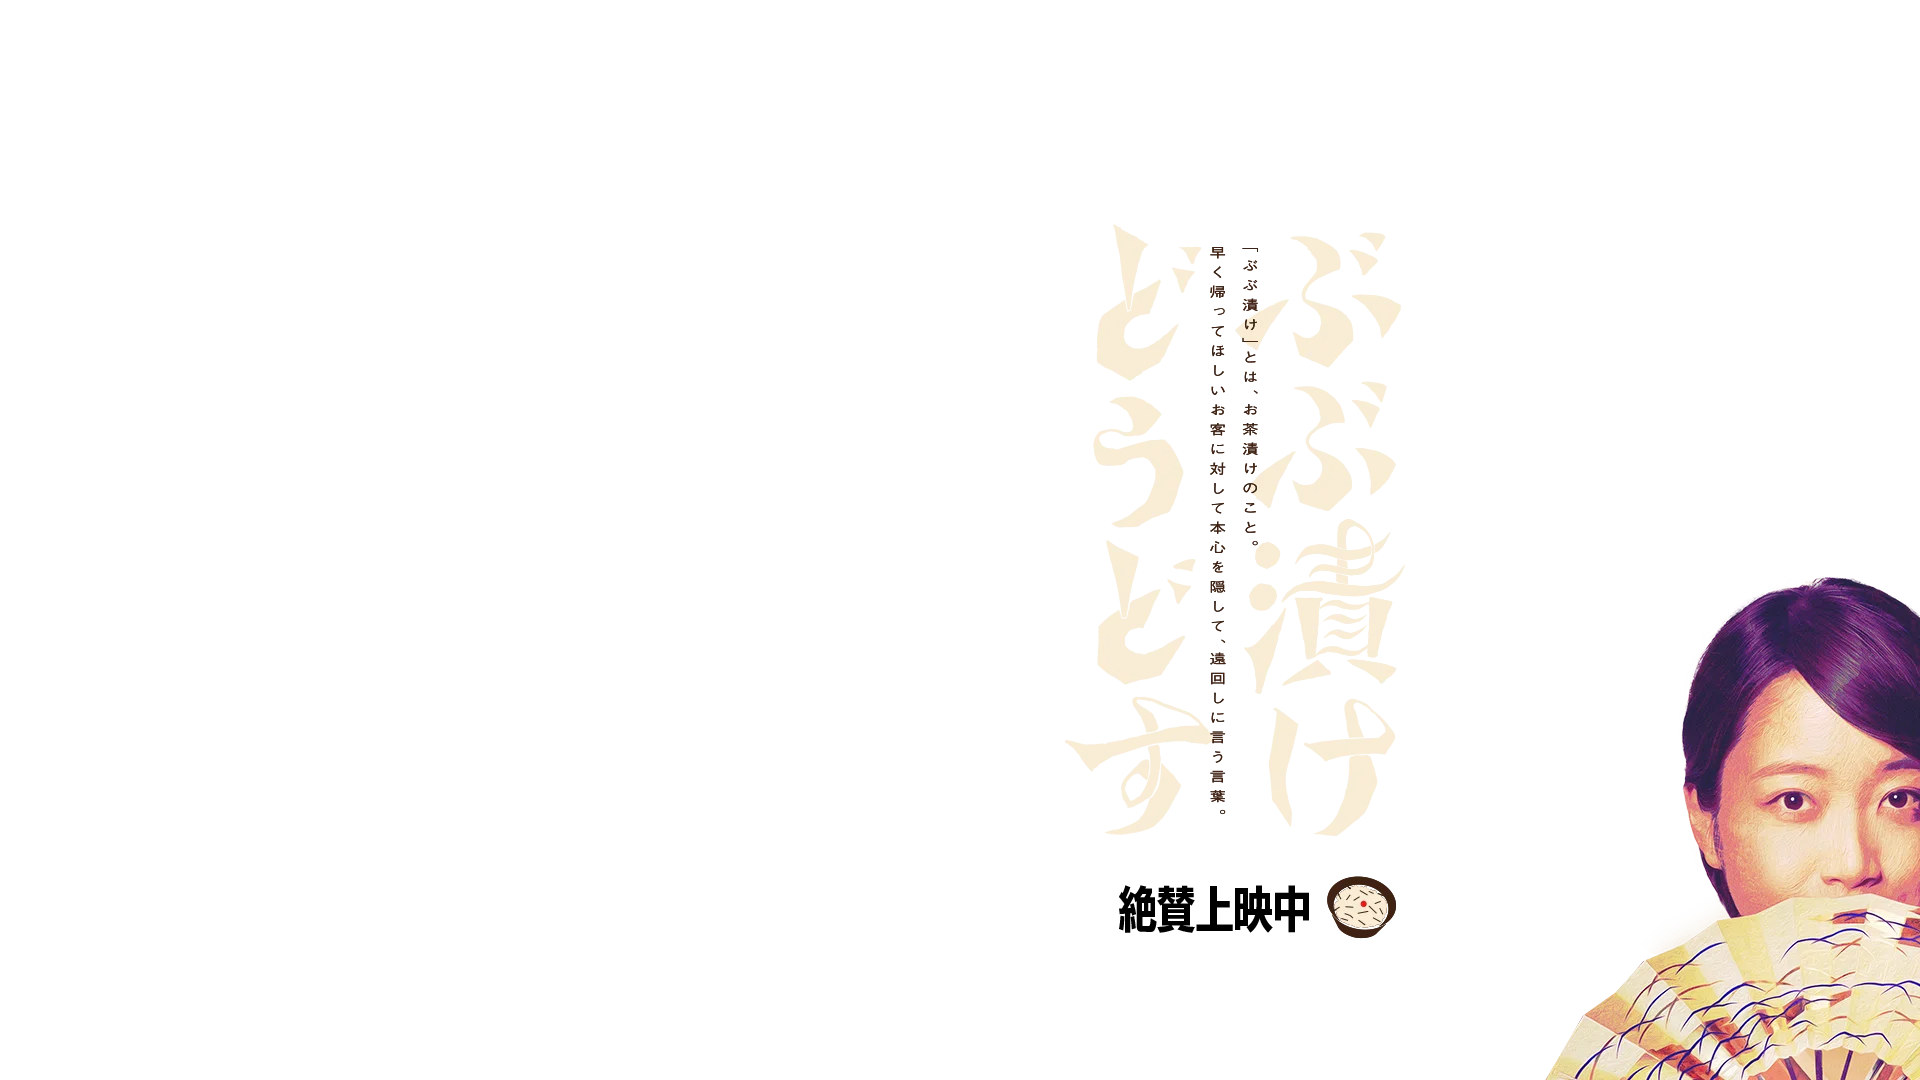 ぶぶ漬け
どうどす
「ぶぶ漬け」とは、お茶漬けのこと。
早く帰ってほしいお客に対して本心を隠して、遠回しに言う言葉。
絶賛上映中